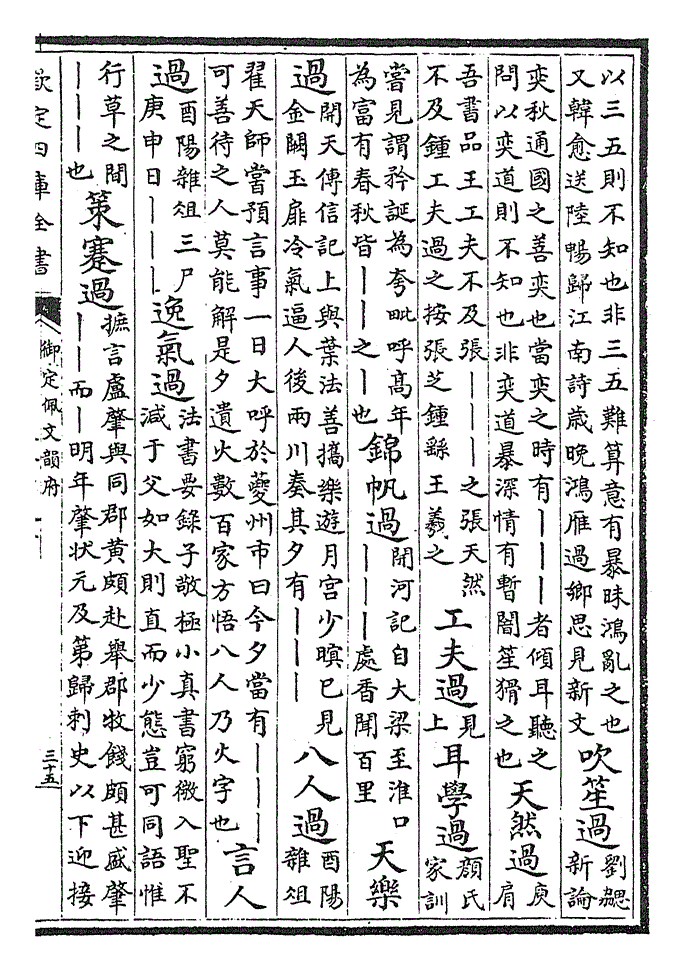 以三五則不知也非三五難算意有暴昧鴻亂之也又韓愈送陸暢歸江南詩歲晚鴻雁過鄉思見新文吹笙過劉勰新論
奕秋通國之善奕也當奕之時有———者傾耳聽之問以奕道則不知也非奕道暴深情有暫闇笙猾之也天然過庾肩
吾書品王工夫不及張———之張天然不及鍾工夫過之按張芝鍾繇王羲之工夫過見上耳學過顏氏家訓
嘗見謂矜誕為夸毗呼髙年為富有春秋皆——之—也錦帆過開河記自大梁至淮口———處香聞百里天樂
過開天傳信記上與葉法善攜樂遊月宫少暝已見金闕玉扉冷氣逼人後兩川奏其夕有———八人過酉陽雜俎
翟天師嘗預言事一日大呼於夔州市曰今夕當有———可善待之人莫能解是夕遺火數百家方悟八人乃火字也言人
過酉陽雜俎三尸庚申日———逸氣過法書要錄子敬極小真書窮微入聖不減于父如大則直而少態豈可同語惟
行草之間———也策蹇過摭言盧肇與同郡黄頗赴舉郡牧餞頗甚盛肇——而—明年肇狀元及第歸刺史以下迎接
欽定四庫全書
御定佩文韻府
三十五